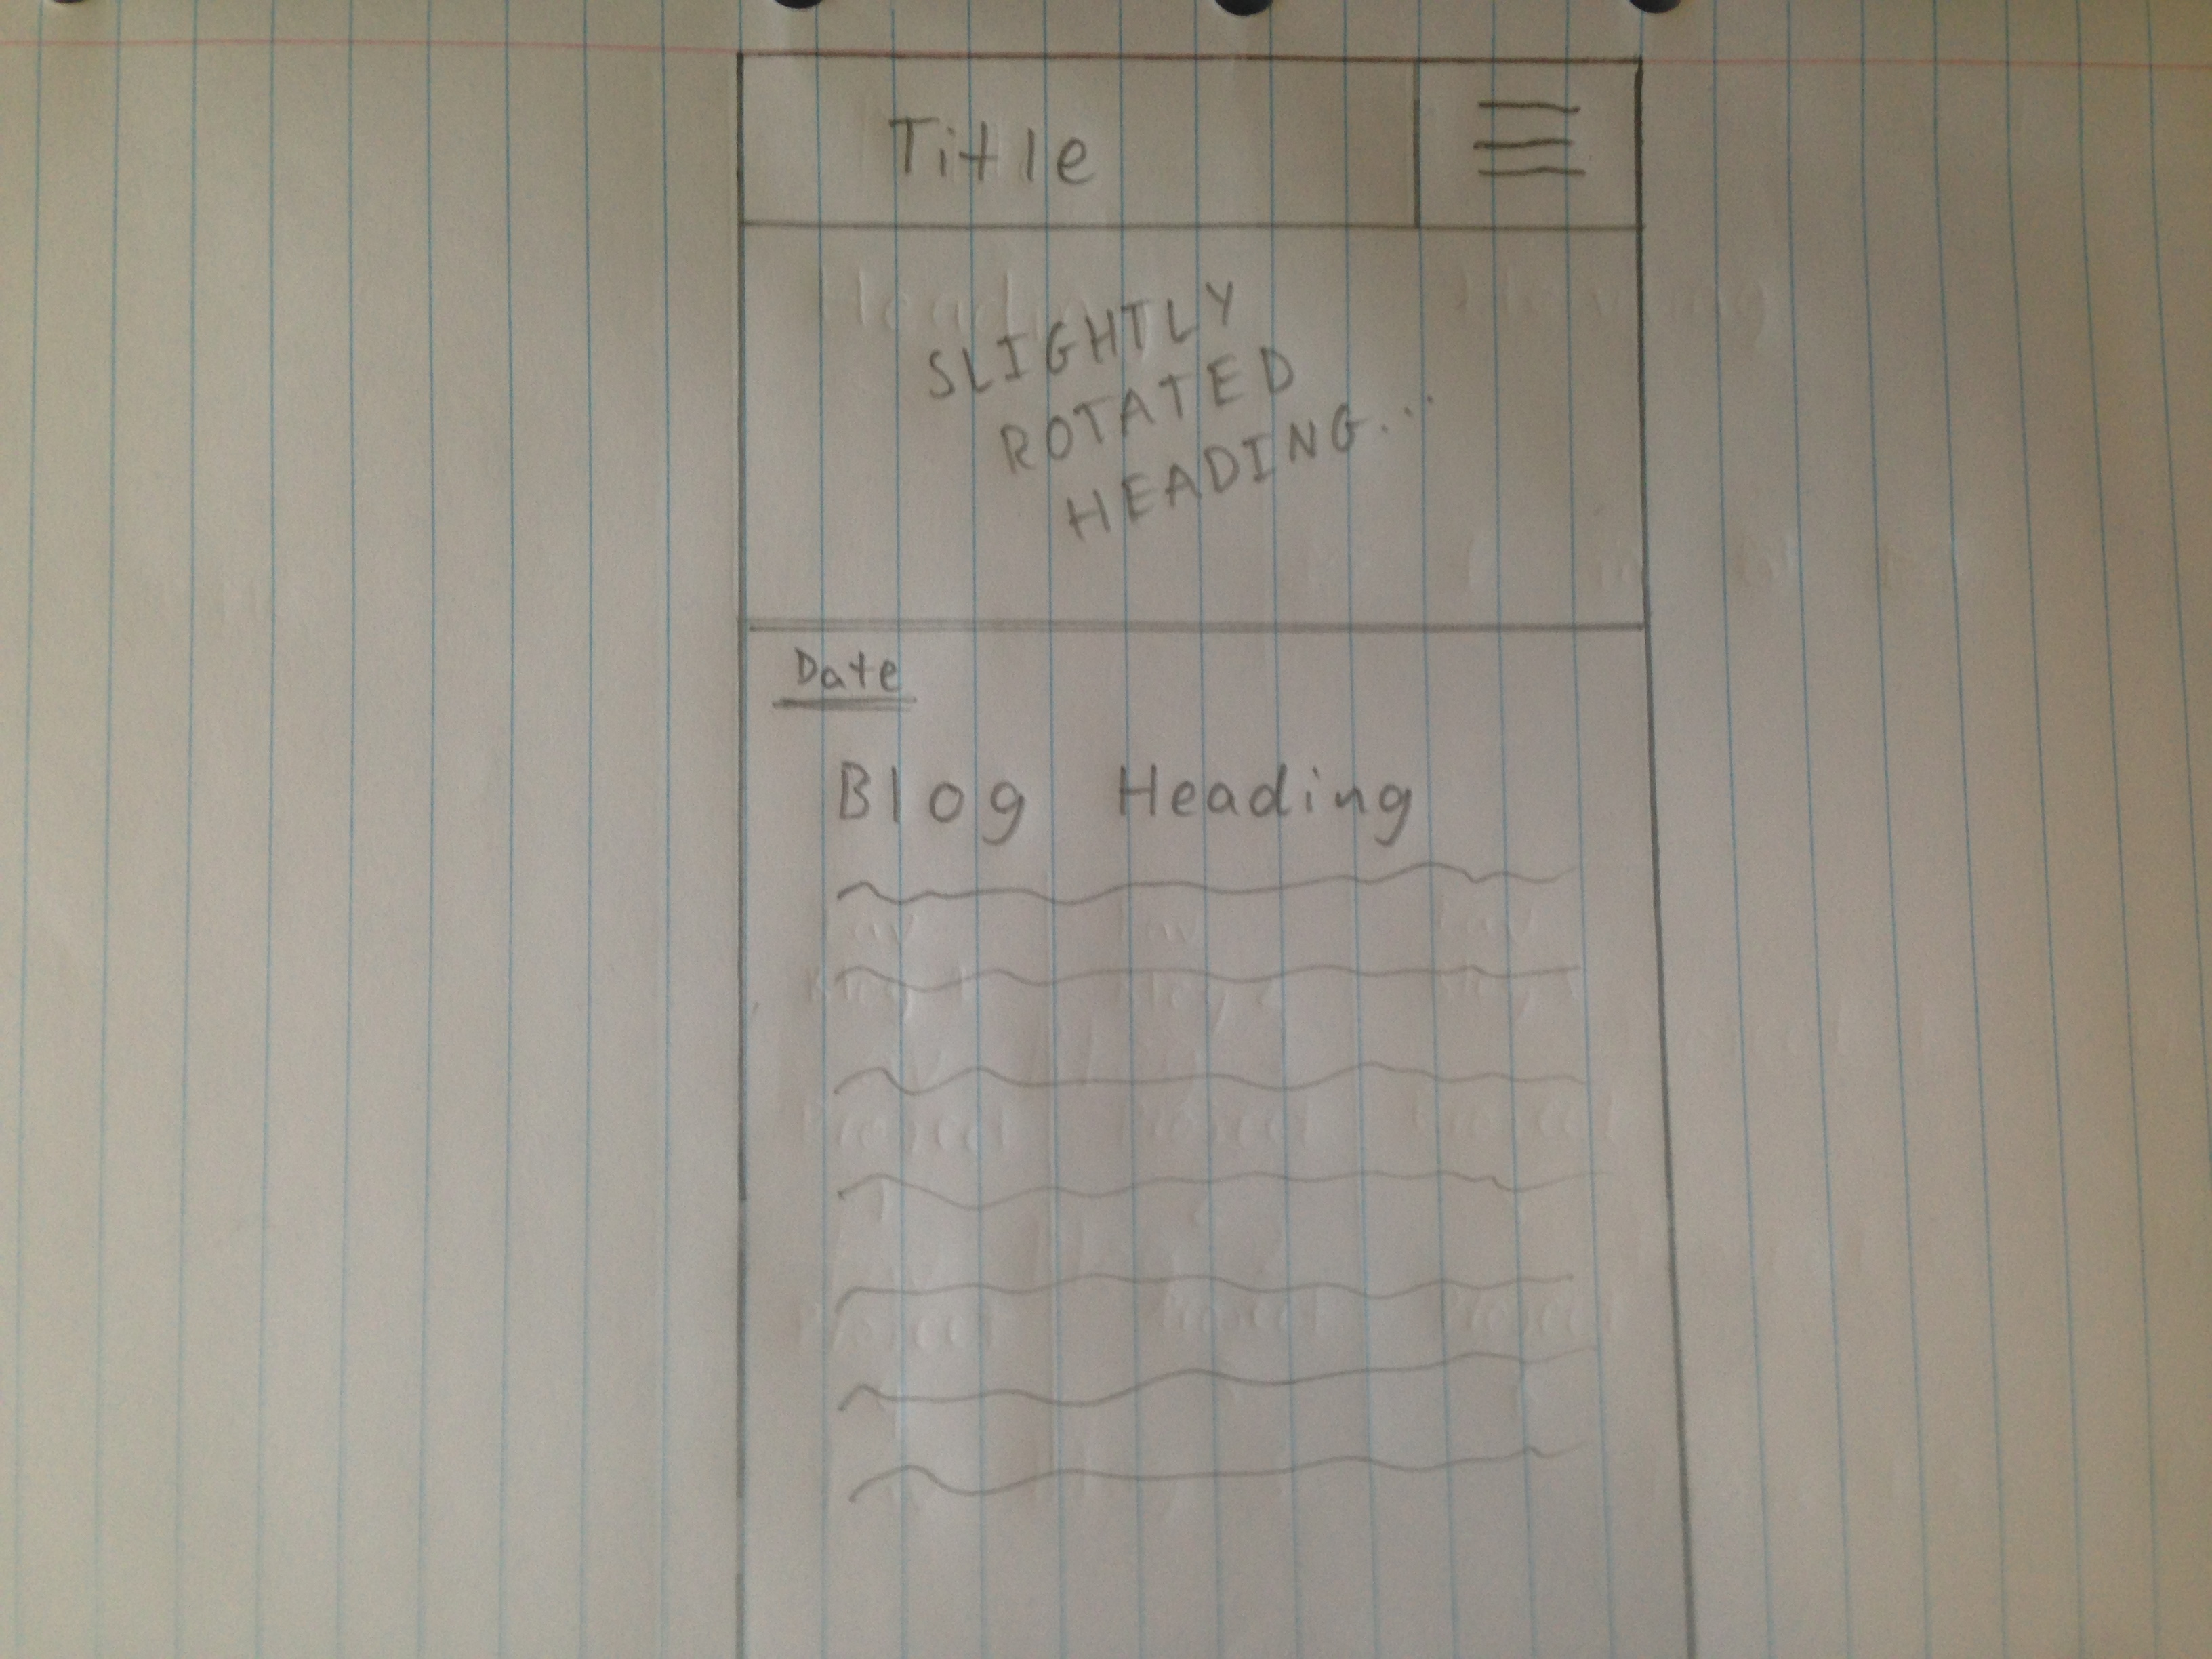 Title
SLIGHTLY
ROTATED
HEADING...
Date
Blog Heading